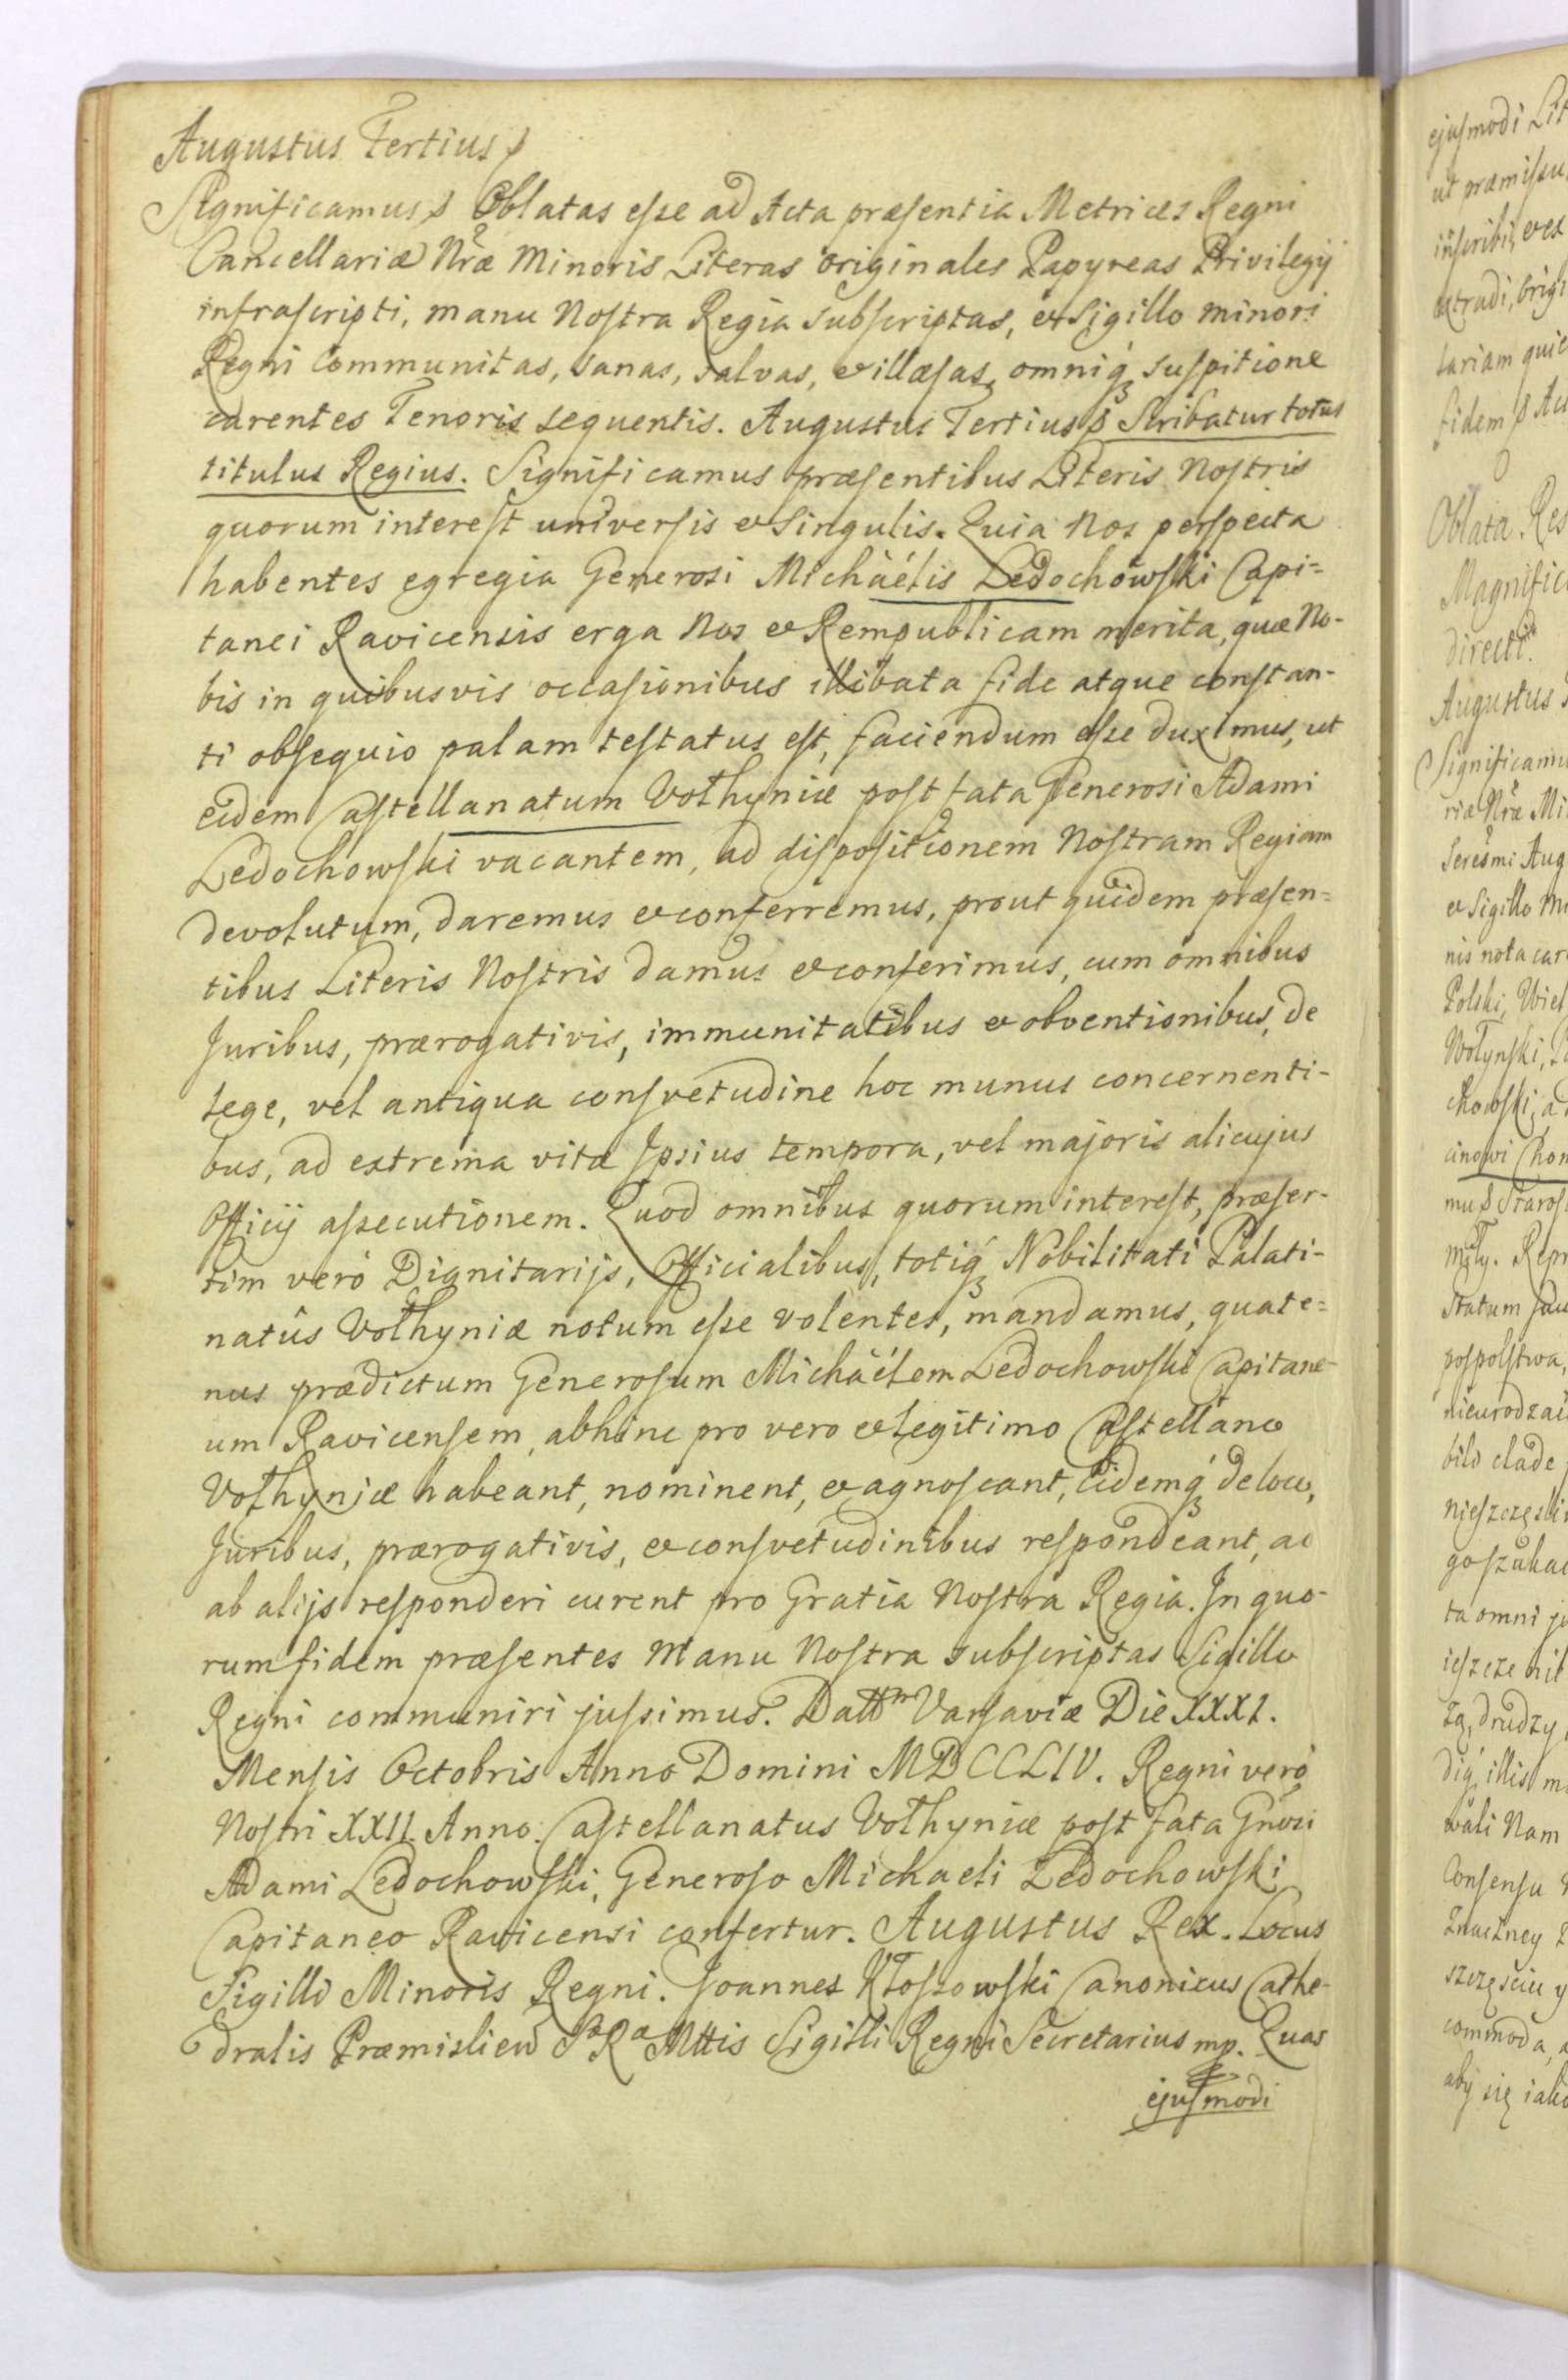 Augustus Tertius
Significamus Oblatas esse ad Acta præsentia Metrices Regni
Cancellariæ Nræ Minoris Literas originales Papyreas Privilegij
infrascripti, manu Nostra Regia subscriptas, et Sigillo minori
Regni Communitas, sanas, salvas, et illæsas, omniq́ suspitione
carentes Tenoris sequentis. Augustus Tertius Scribatur totus
titulus Regius. Significamus præsentibus Literis Nostris
quorum interest universis et singulis. Quia Nos perspecta
habentes egregia Generosi Michäélis Ledochowski Capi=
tanei Ravicensis erga Nos et Rempublicam merita, quæ No-
bis in quibusvis occasionibus illibata fide atque constan-
ti obsequio palam testatus est, faciendum esse duximus, ut
eidem Castellanatum Volhyniæ post fata Generosi Adami
Ledochowski vacantem, ad dispositionem Nostram Regiam
devolutum, daremus et conferremus, prout quidem præsen=
tibus Literis Nostris damus et conferimus, cum omnibus
Juribus, prærogativis, immunitatibus et obventionibus, de
lege, vel antiqua consvetudine hoc munus concernenti-
bus, ad extrema vitæ Ipsius tempora, vel majoris alicujus
Officij assecutionem. Quod omnibus quorum interest, præser-
tim veró Dignitarijs, Officialibus, totiq́ Nobilitati Palati-
natûs Volhyniæ notum esse volentes, mandamus, quate=
nus prædictum Generosum Michäélem Ledochowski Capitane-
um Ravicensem, abhinc pro vero et legitimo Castellano
Volhyniæ habeant, nominent, et agnoscant, Eidemq́ de loco,
Juribus, prærogativis, et consvetudinibus respondeant, ac
ab alijs responderi curent pro Gratia Nostra Regia. In quo-
rum fidem præsentes Manu Nostra subscriptas Sigillo
Regni communiri jussimus. Dattm Varsaviæ Die XXXI.
Mensis Octobris Anno Domini MDCCLIV. Regni veró
Nostri XXII Anno. Castellanatus Volhyniæ post fata Gnosi
Adami Ledochowski, Generoso Michaeli Ledochowski
Capitaneo Ravicensi confertur. Augustus Rex. Locus
Sigilli Minoris Regni. Joannes Kłossowski Canonicus Cathe-
dralis Præmislien SaRa Mttis Sigilli Regni Secretarius mp. Quas
ejusmodi